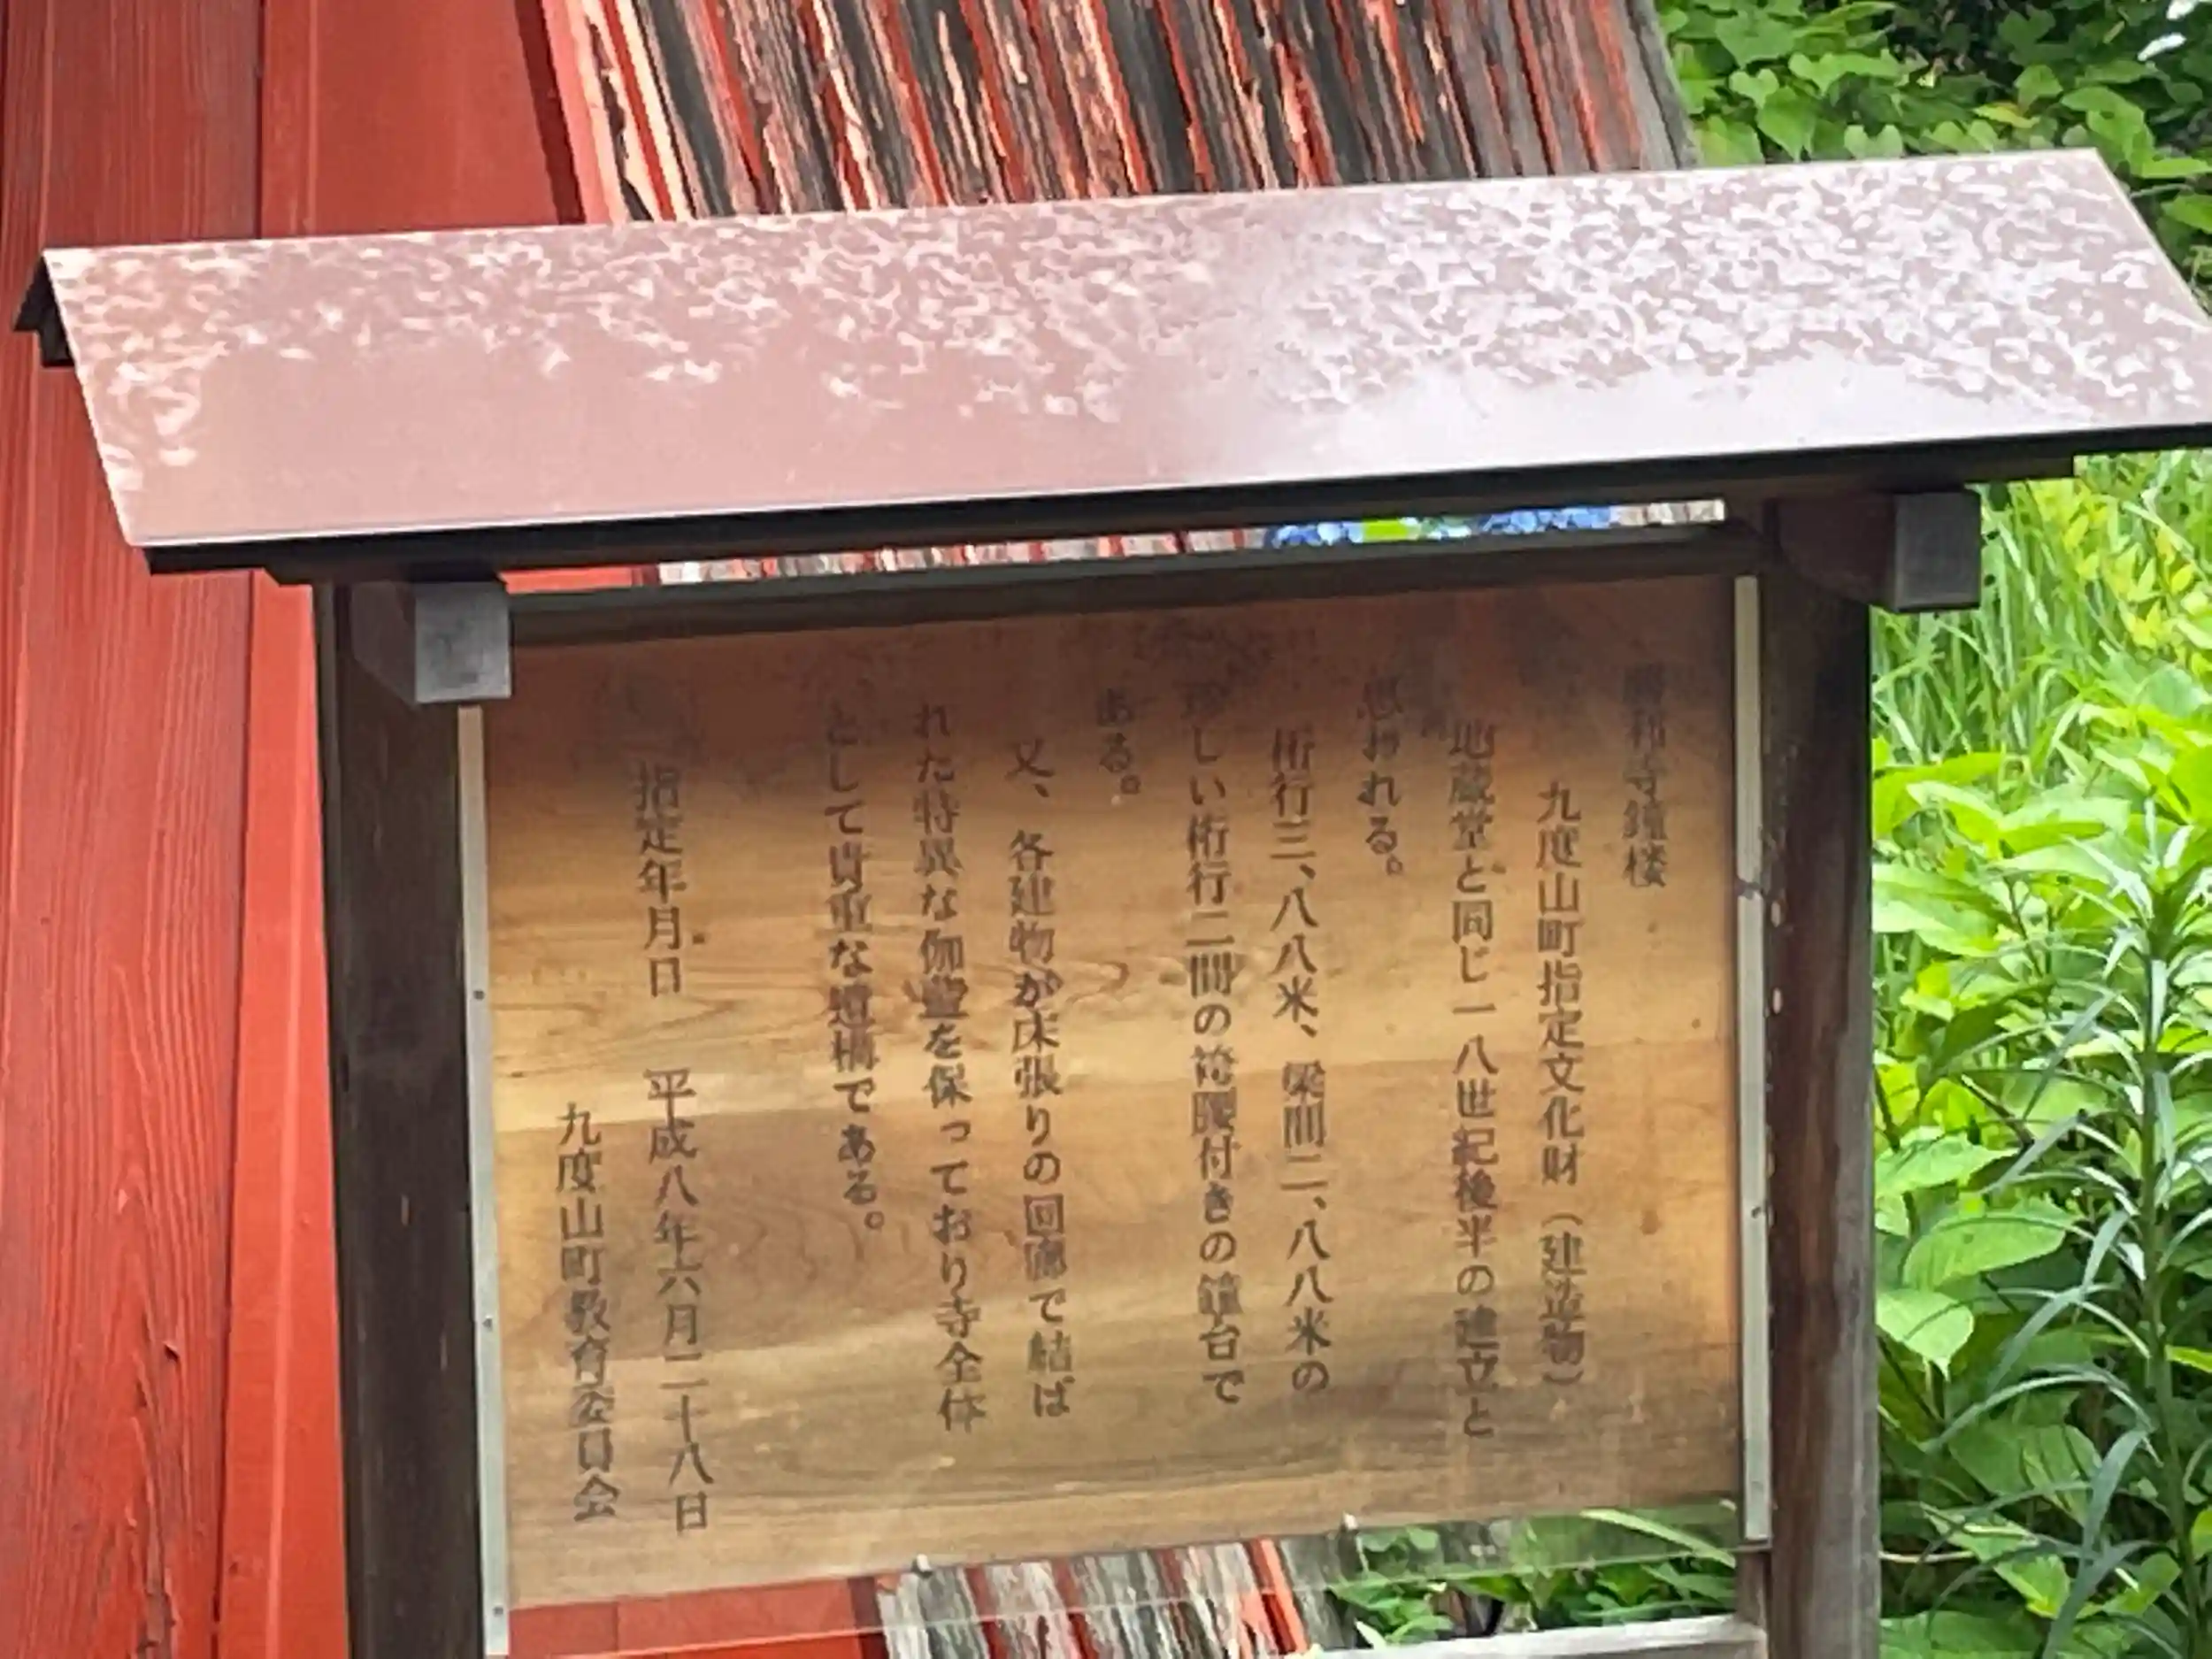 寺鐘楼
九度山町指定文化財（建造物）
地蔵堂と同じ一八世紀後半の建立と
思われる。
桁行三、八八米、梁間二、八八米の
珍しい桁行二間の袴腰付きの鐘台で
ある。
又、各建物が床張りの回廊で結ば
れた特異な伽藍を保っており寺全体
として貴重な遺構である。
指定年月日　平成八年六月二十八日
九度山町教育委員会